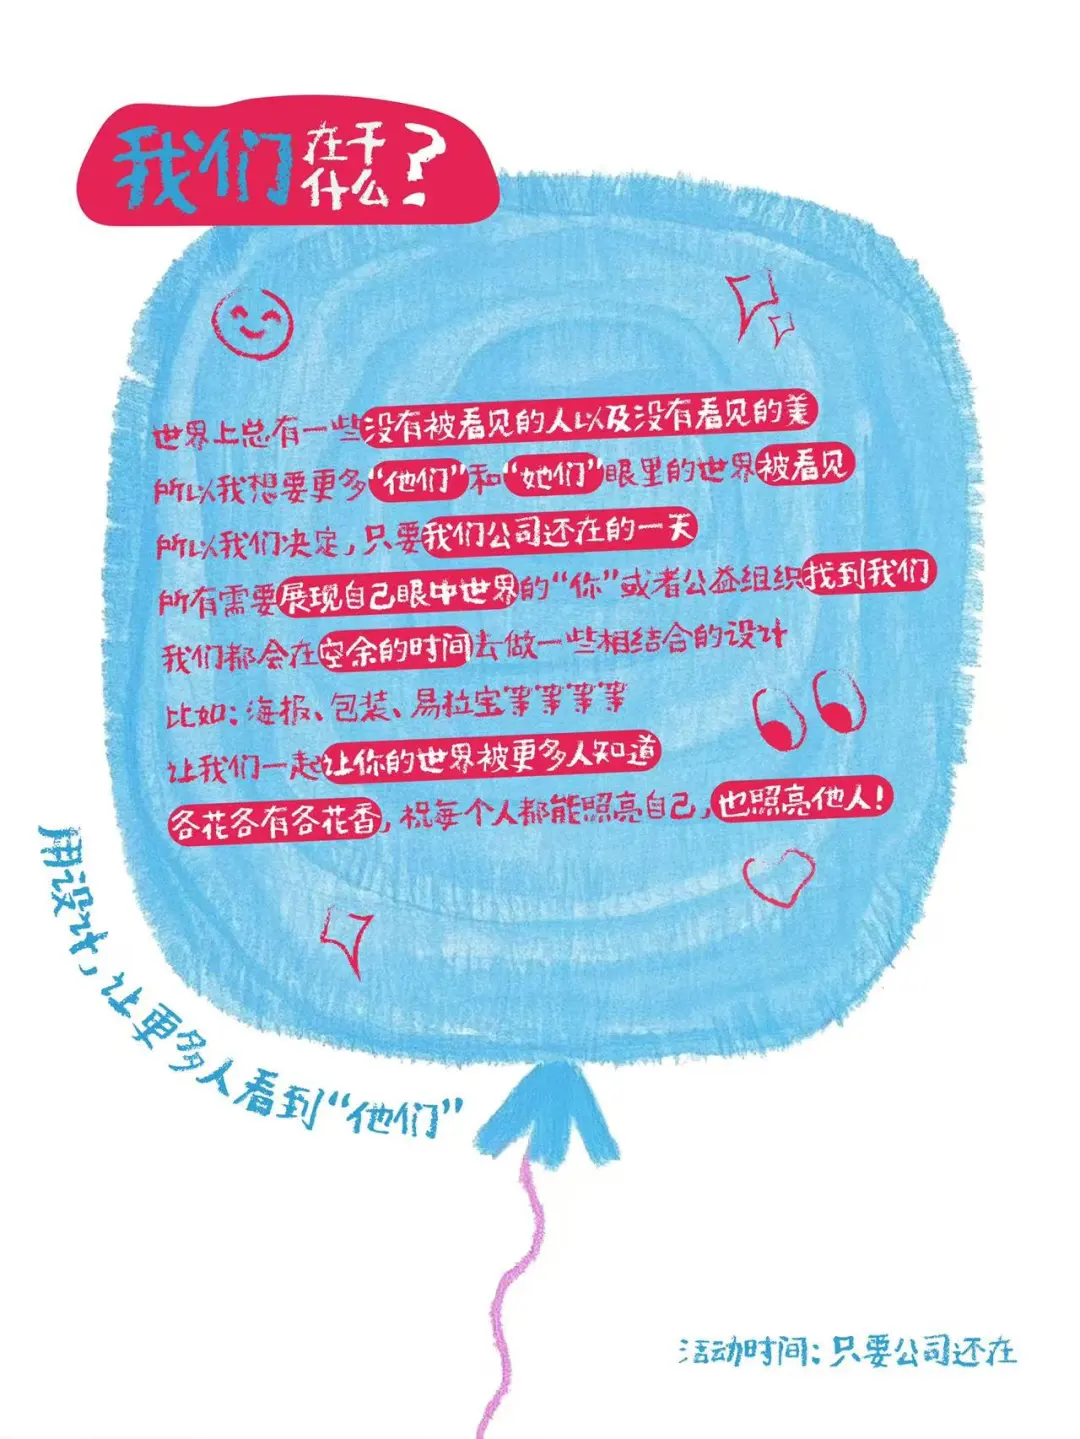 我们在干什么?
世界上总有一些没有被看见的人以及没有看见的美
所以我想要更多“他们”和“她们”眼里的世界被看见
所以我们决定,只要我们公司还在的一天
所有需要展现自己眼中世界的“你”或者公益组织找到我们
我们都会在空余的时间去做一些相结合的设计
比如:海报、包装、易拉宝等等等等
让我们一起让你的世界被更多人知道
各花各有各花香,祝每个人都能照亮自己,也照亮他人!
用设计,让更多人看到“他们”
活动时间:只要公司还在